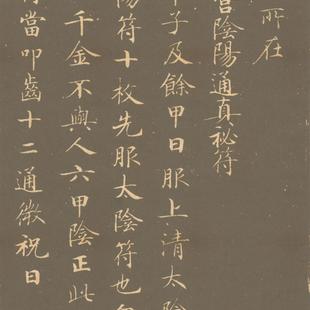 所在
宮陰陽通真祕符
子及餘甲日服上清太陰
陽符十枚先服太陰符也
千金不與人六甲陰正此
符當叩齒十二通微祝曰